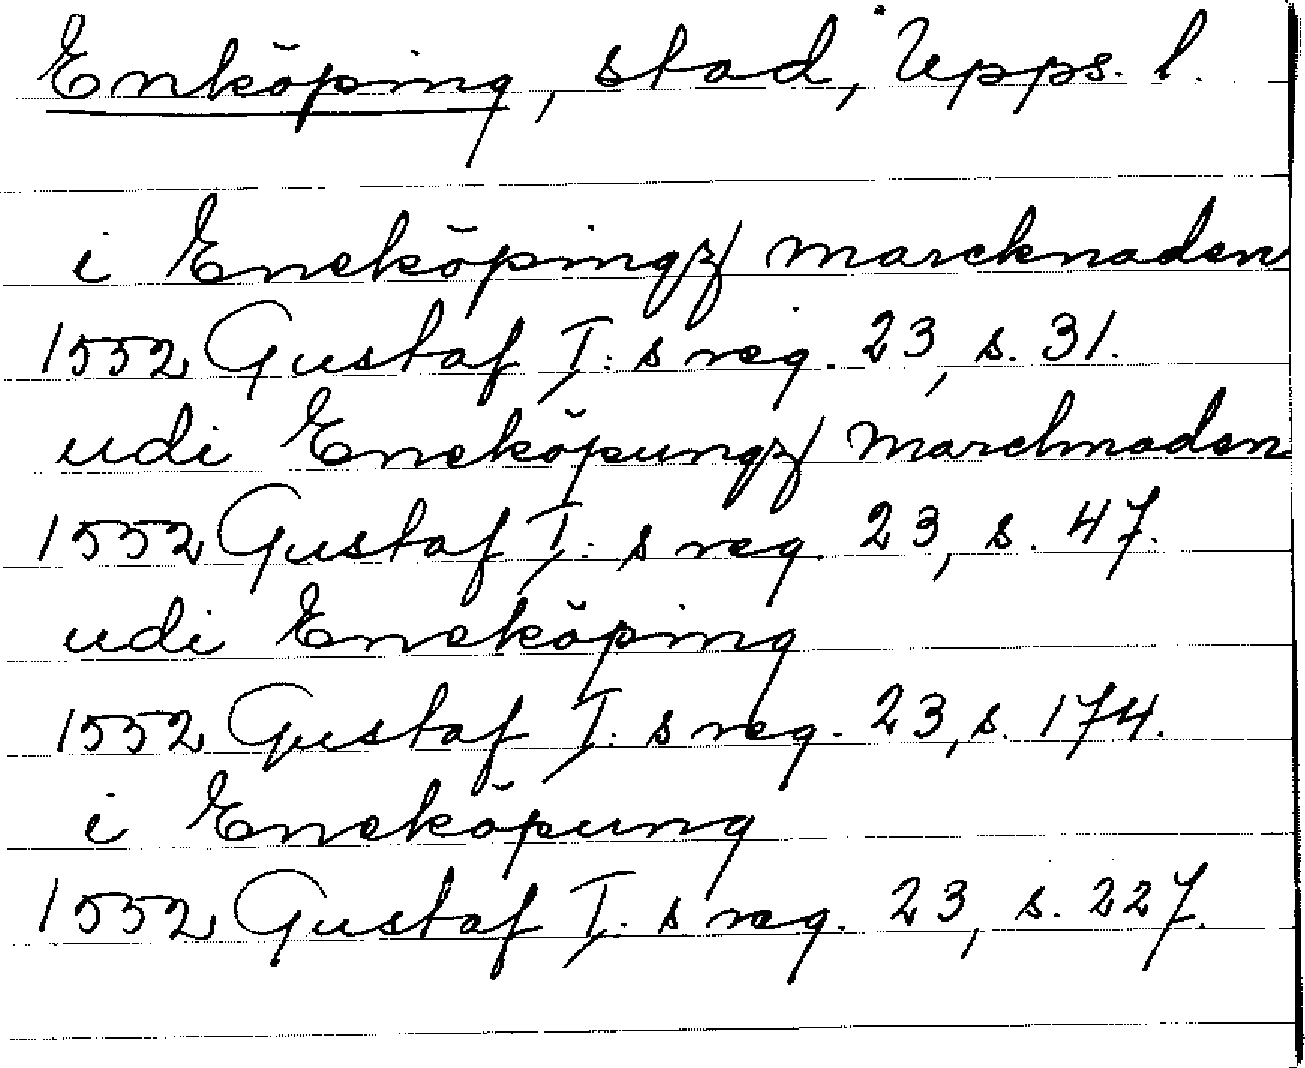 Enköping, stad, Upps. l.
i Eneköpingzf marcknaden
1552 Gustaf I: s reg. 23, s. 31.
udi Eneköpungzf marchnaden
1552 Gustaf I: s reg. 23, s. 47.
udi Eneköping
1552 Gustaf I: s reg. 23, s. 174.
i Eneköpung
1552 Gustaf I: s reg. 23, s. 227.